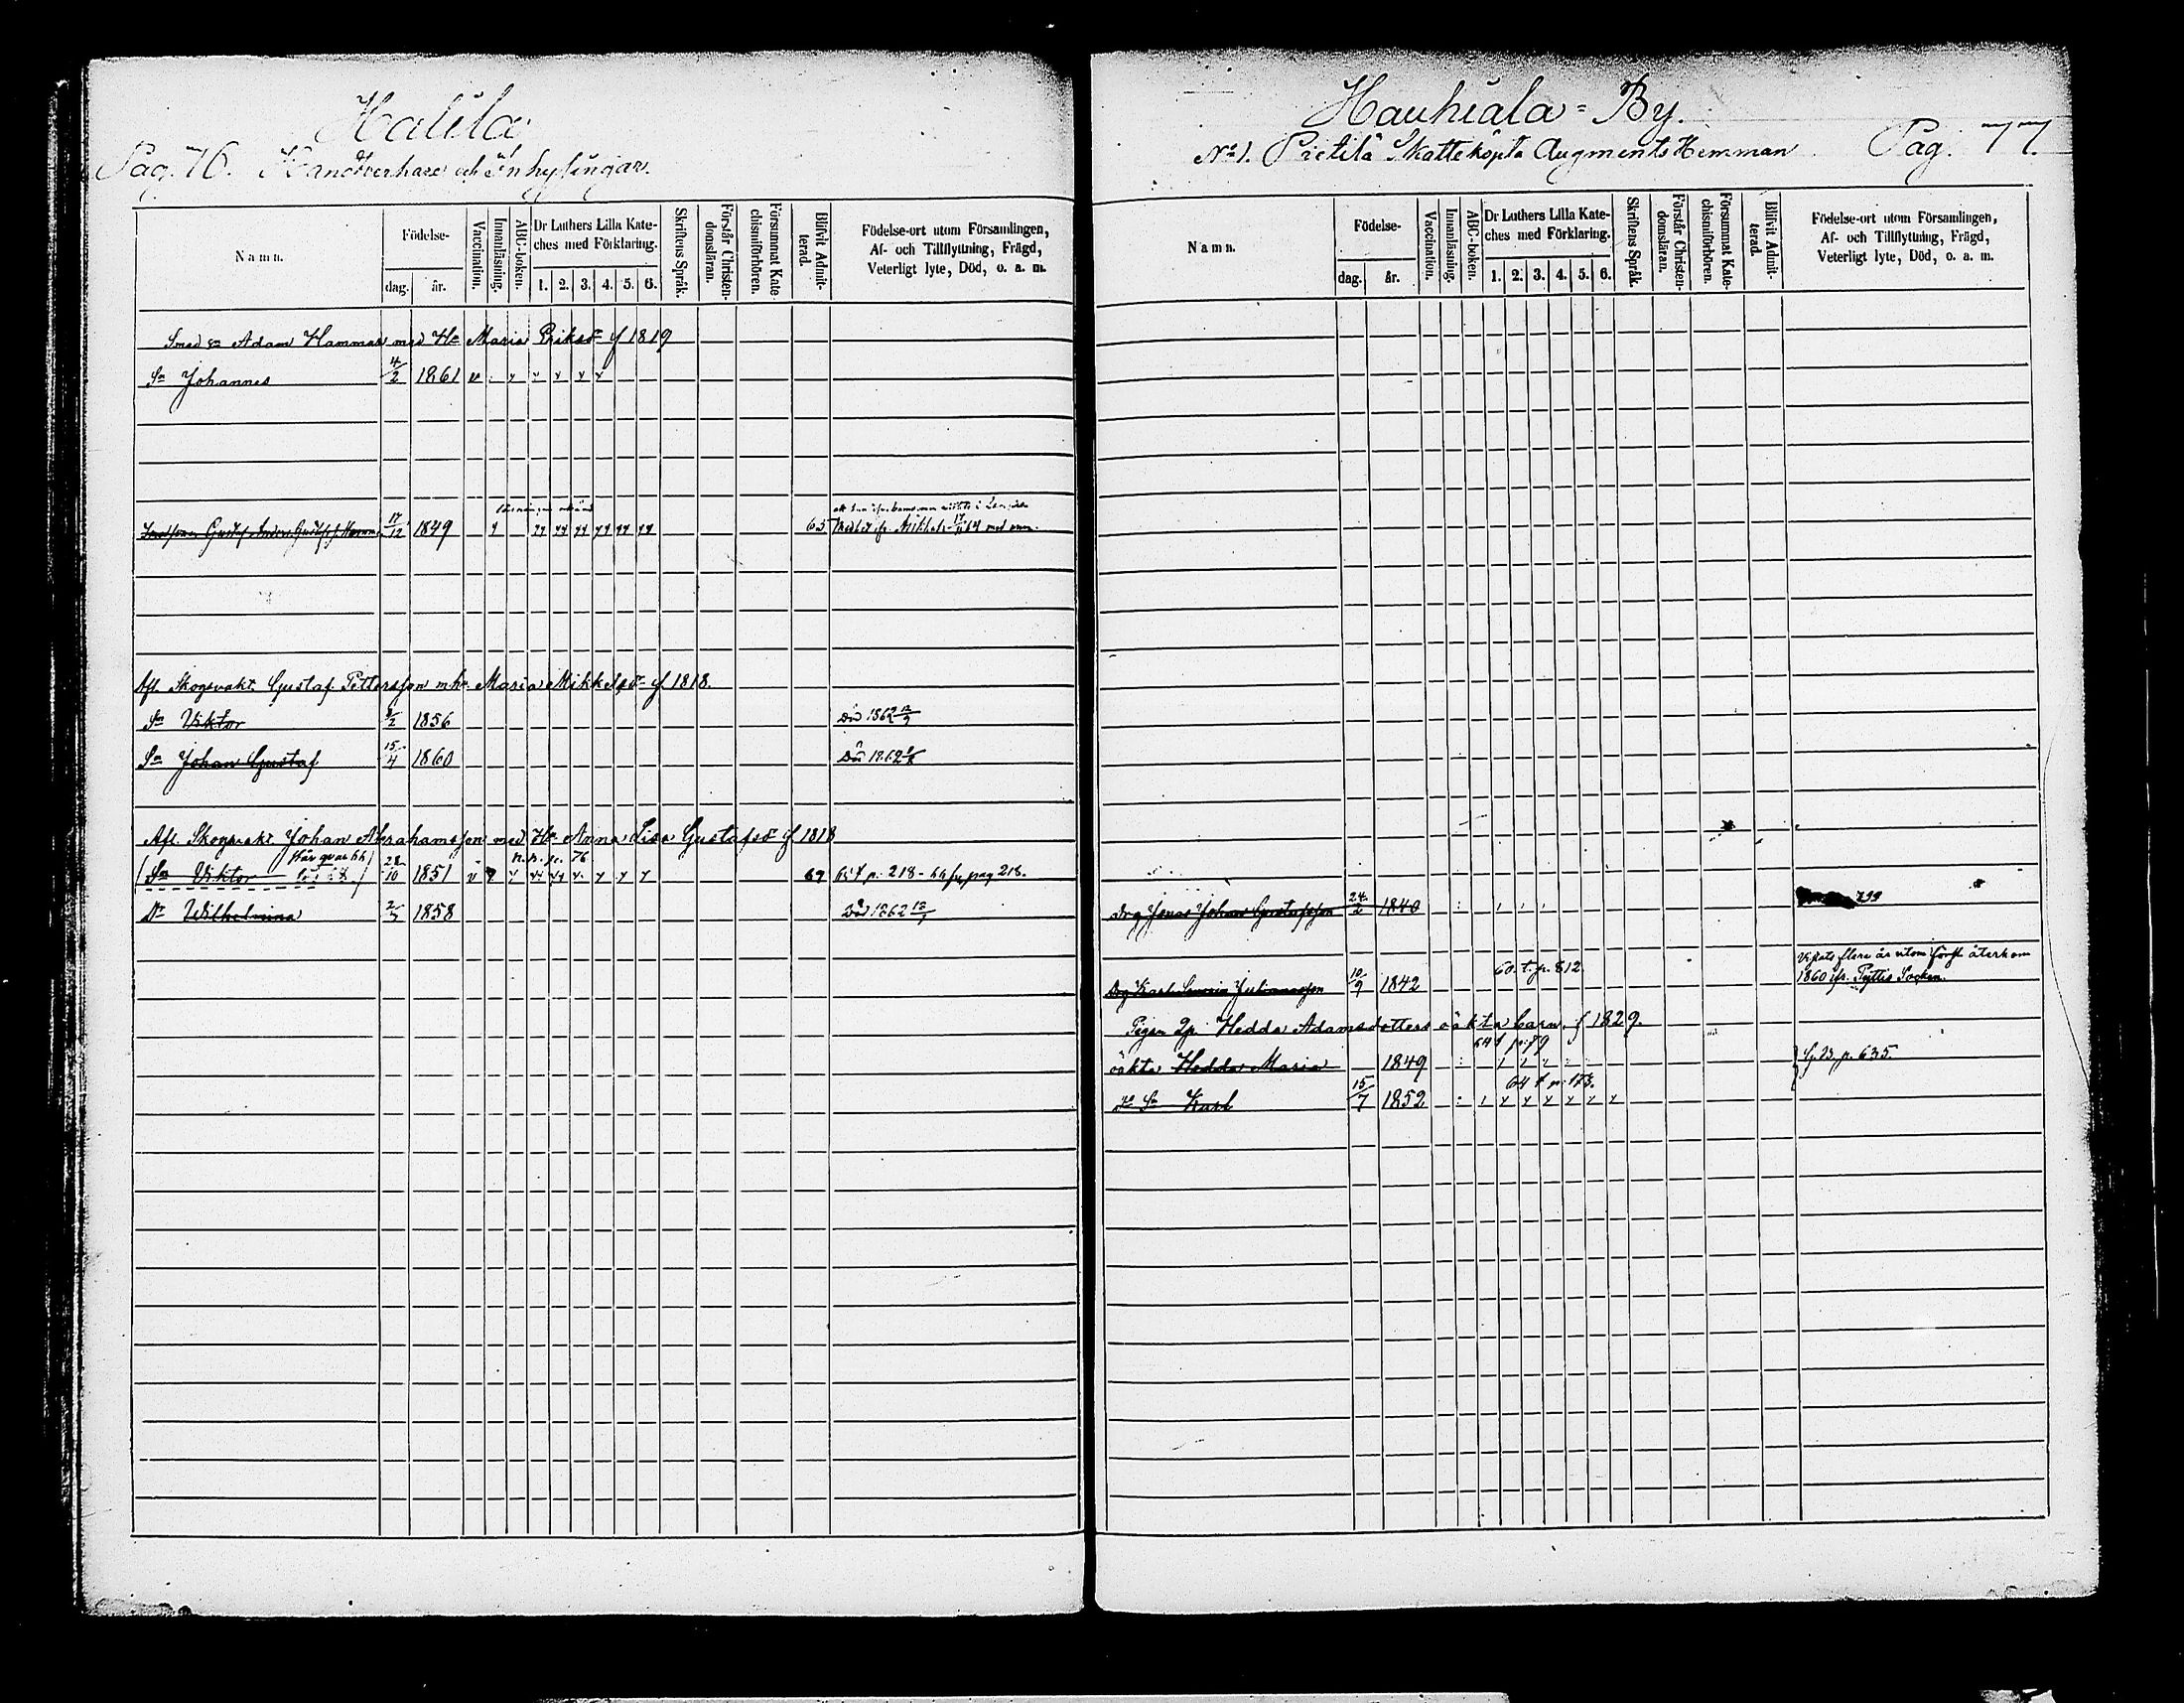 Halila
Pag. 76. Handtverkare och Inhysingar.
Namn.
Födelse-
dag.
år.
Vaccination.
Innanläsning.
ABC-boken.
Dr Luthers Lilla Kate-
ches med Förklaring.
1. 2. 3. 4. 5. 6.
Skriftens Språk.
Förstår Christen-
domsläran.
Försummat Kate-
chismiförhören.
Blifvit Admit-
terad.
Födelse-ort utom Församlingen,
Af- och Tillflyttning, Frägd,
Veterligt lyte, Död, o. a. m.
Smed Adam Hammar med Hu Maria Eriksdr f 1819
Sn Johannes 4/2 1861 v
Gustaf 17/12 1849 65
Afl. Skogsvakt. Gustaf Pettersson m hu Maria Mikkelsdr f. 1818.
Sn Viktor 8/2 1856 Död 1862
Sn Johan Gustaf 15/4 1860 Död 1862
Afl. Skogsvakt. Johan Abrahamsson med Hu Anna Lisa Gustafsdr f 1818
Sn Viktor 28/10 1851 v 69 65 t p. 218 - 66 fr pag 218.
Dr Wilhelmina 1858 Död 1862
Hauhiala = By.
No 1. Pietilä Skatteköpta Augments Hemman. Pag. 77.
Namn.
Födelse-
dag.
år.
Vaccination.
Innanläsning.
ABC-boken.
Dr Luthers Lilla Kate-
ches med Förklaring.
1. 2. 3. 4. 5. 6.
Skriftens Språk.
Förstår Christen-
domsläran.
Försummat Kate-
chismiförhören.
Blifvit Admit-
terad.
Födelse-ort utom Församlingen,
Af- och Tillflyttning, Frägd,
Veterligt lyte, Död, o. a. m.
Drg Jonas Johan Gustafsson 24/2 1840 799
60. t. p. 812
Vistats flera år utom förs återkom
Drg Karl Julianasson 10/9 1842 1860 fr. Pyttis Socken.
Pigan Hedda Adamsdotters oäkta barn. f 1829.
oäkta Hedda Maria 1849 p. 635.
64 t p. 173.
Sn Karl 15/7 1852